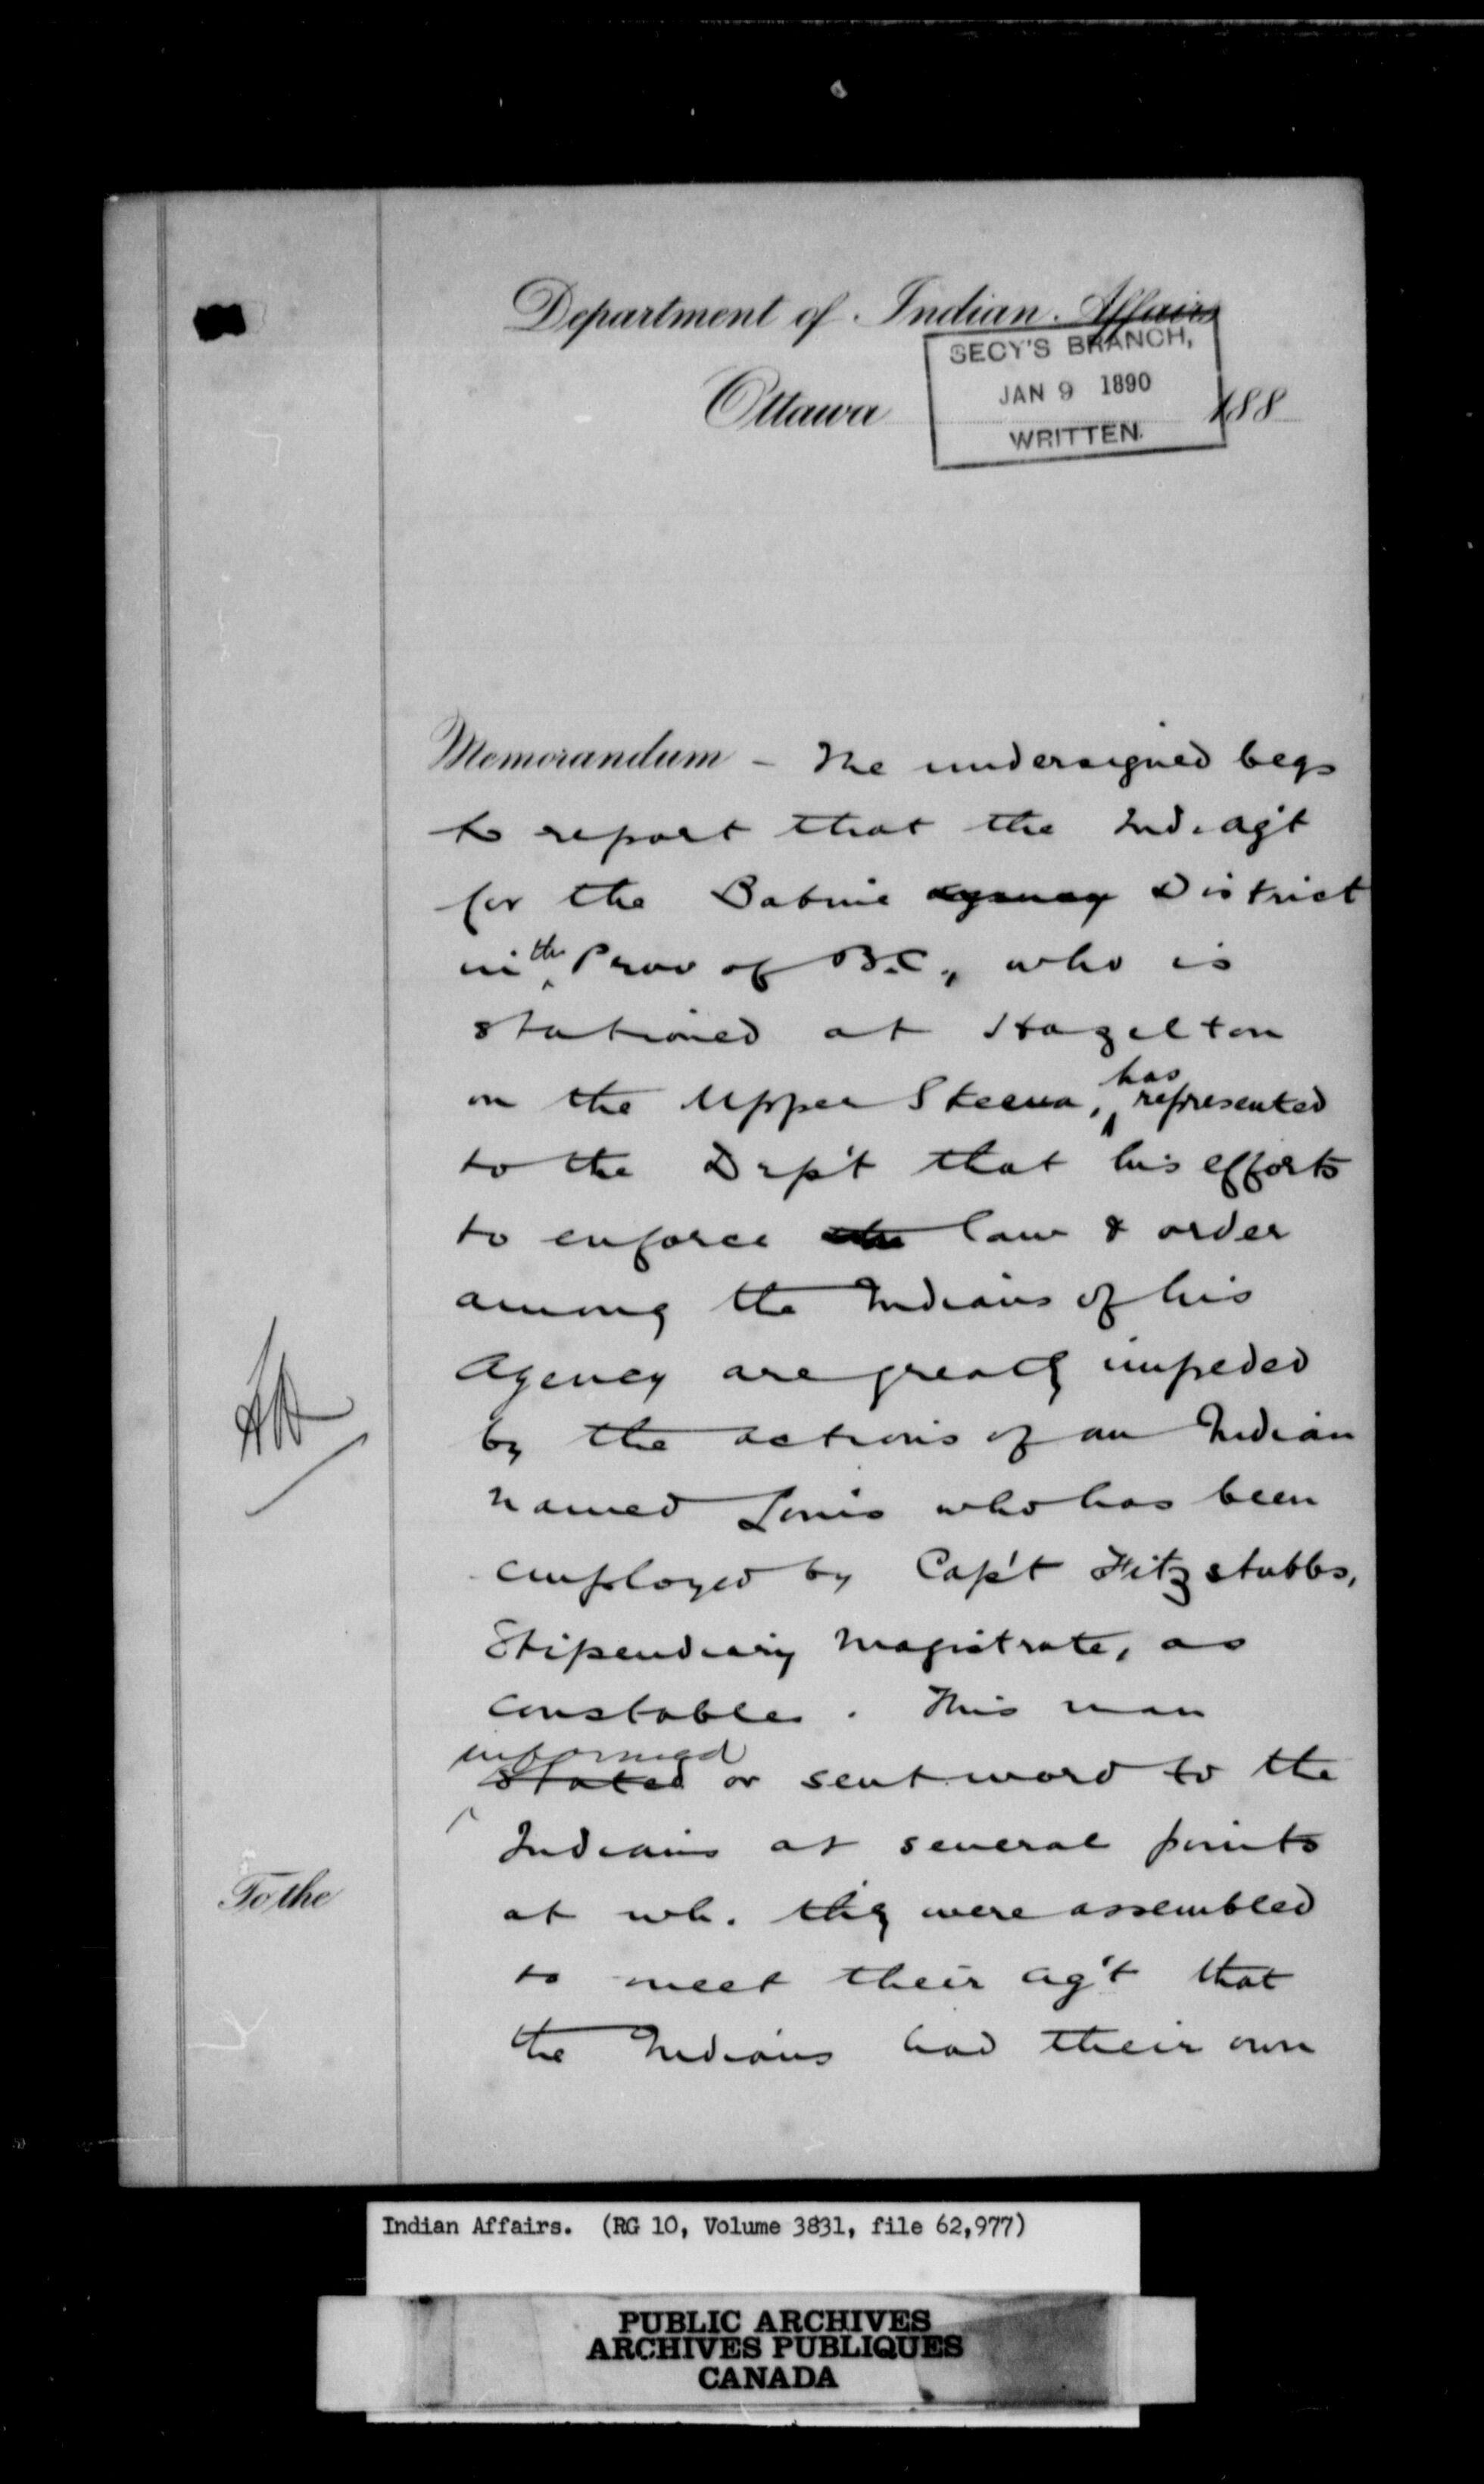 Department of Indian Affairs
SECY'S BRANCH,
JAN 9 1890
WRITTEN.
Ottawa 188
Memorandum - The undersigned begs
to report that the Ind. ag't
for the Babine agency District
in the Prov of B.C., who is
stationed at Hazelton
on the Upper Skeena, has represented
to the Dep't that his efforts
to enforce the law & order
among the Indians of his
Agency are greatly impeded
by the actions of an Indian
named Louis who has been
employed by Cap't Fitzstubbs,
Stipendiary Magistrate, as
constable. This man
informed
stated or sent word to the
Indians at several points
at wh. they were assembled
To the
to meet their ag't that
the Indians had their own
Indian Affairs. (RG 10, Volume 3831, file 62,977)
PUBLIC ARCHIVES
ARCHIVES PUBLIQUES
CANADA